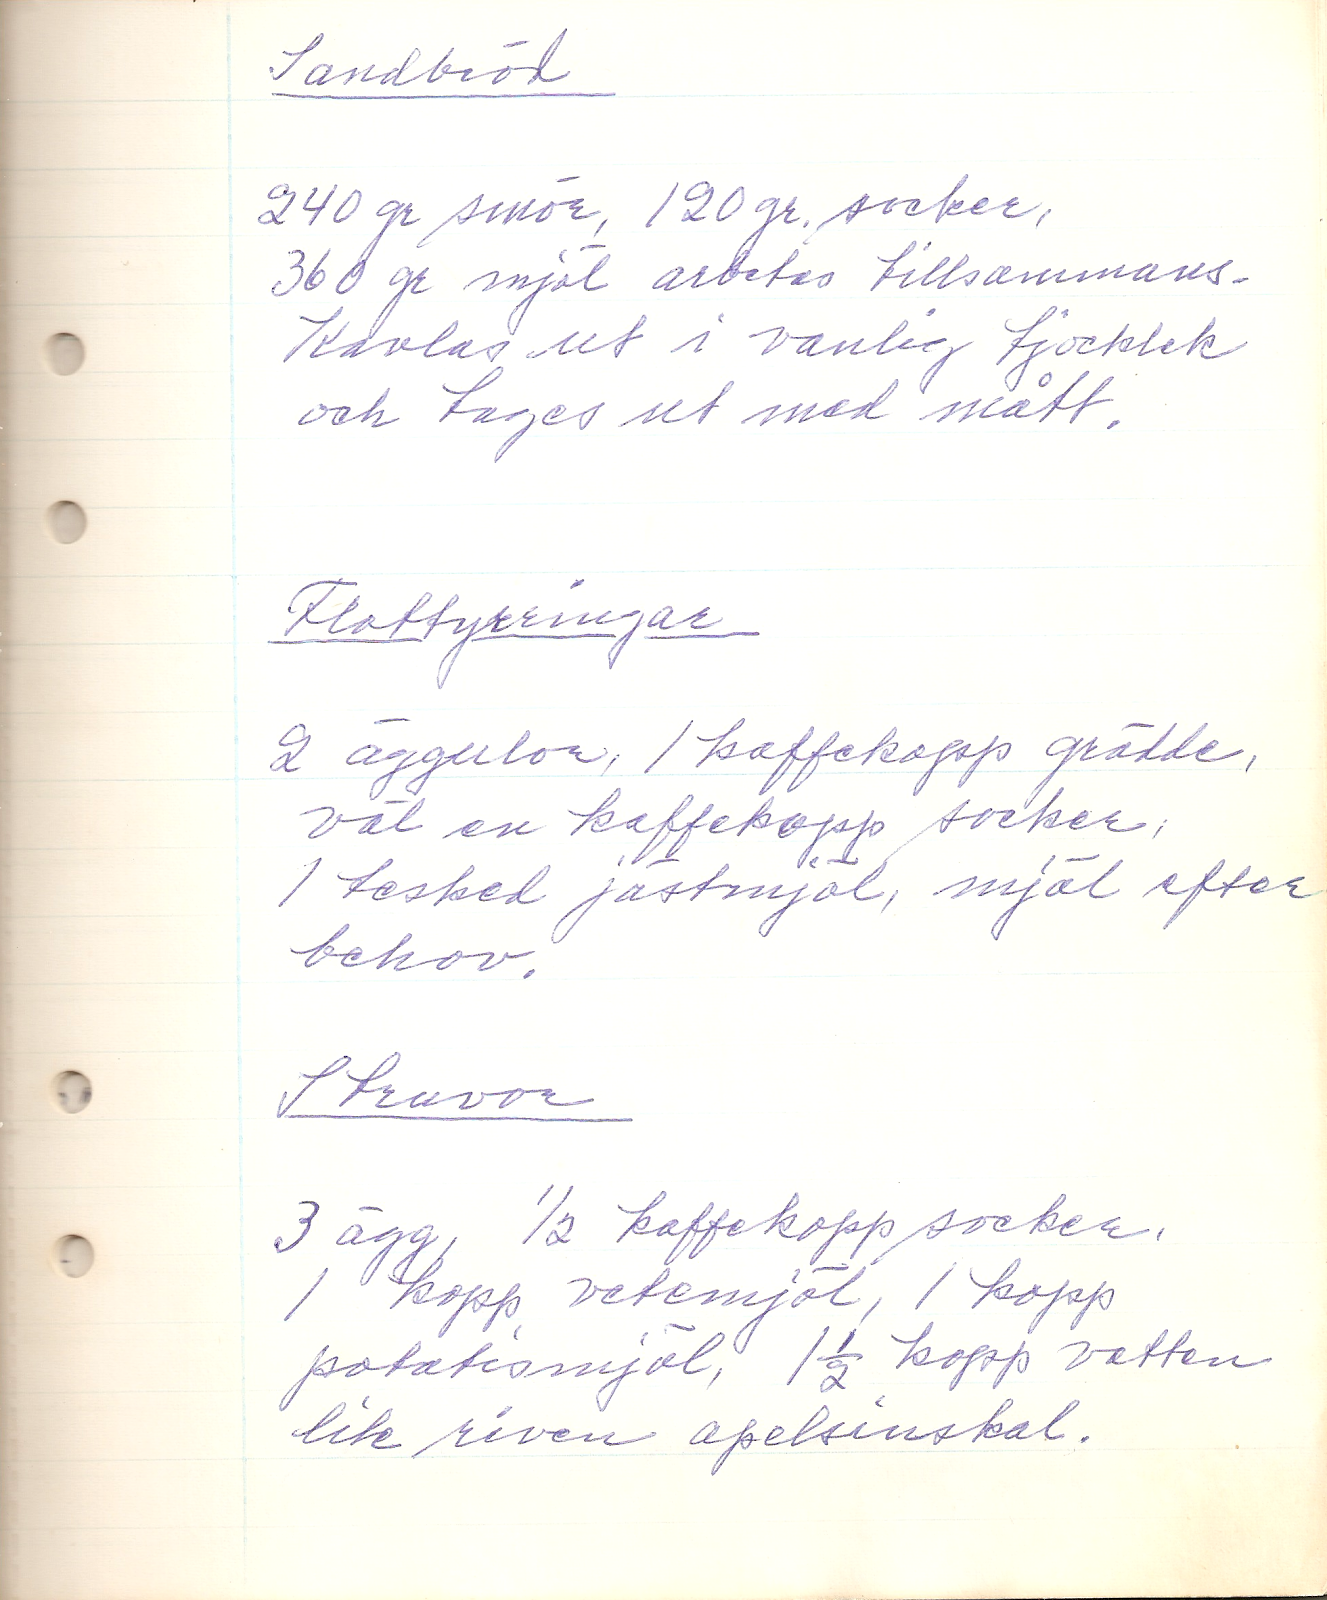 Sandbröd
240 gr smör, 120 gr. socker,
360 gr mjöl arbetas tillsammans.
Kavlas ut i vanlig tjocklek
och tages ut med mått.
Flottyrringar
2 äggulor, 1 kaffekopp grädde,
väl en kaffekopp socker,
1 tesked jästmjöl, mjöl efter
behov.
Struvor
3 ägg, 1/2 kaffekopp socker.
1 kopp vetemjöl, 1 kopp
potatismjöl, 1 1/2 kopp vatten
lite riven apelsinskal.